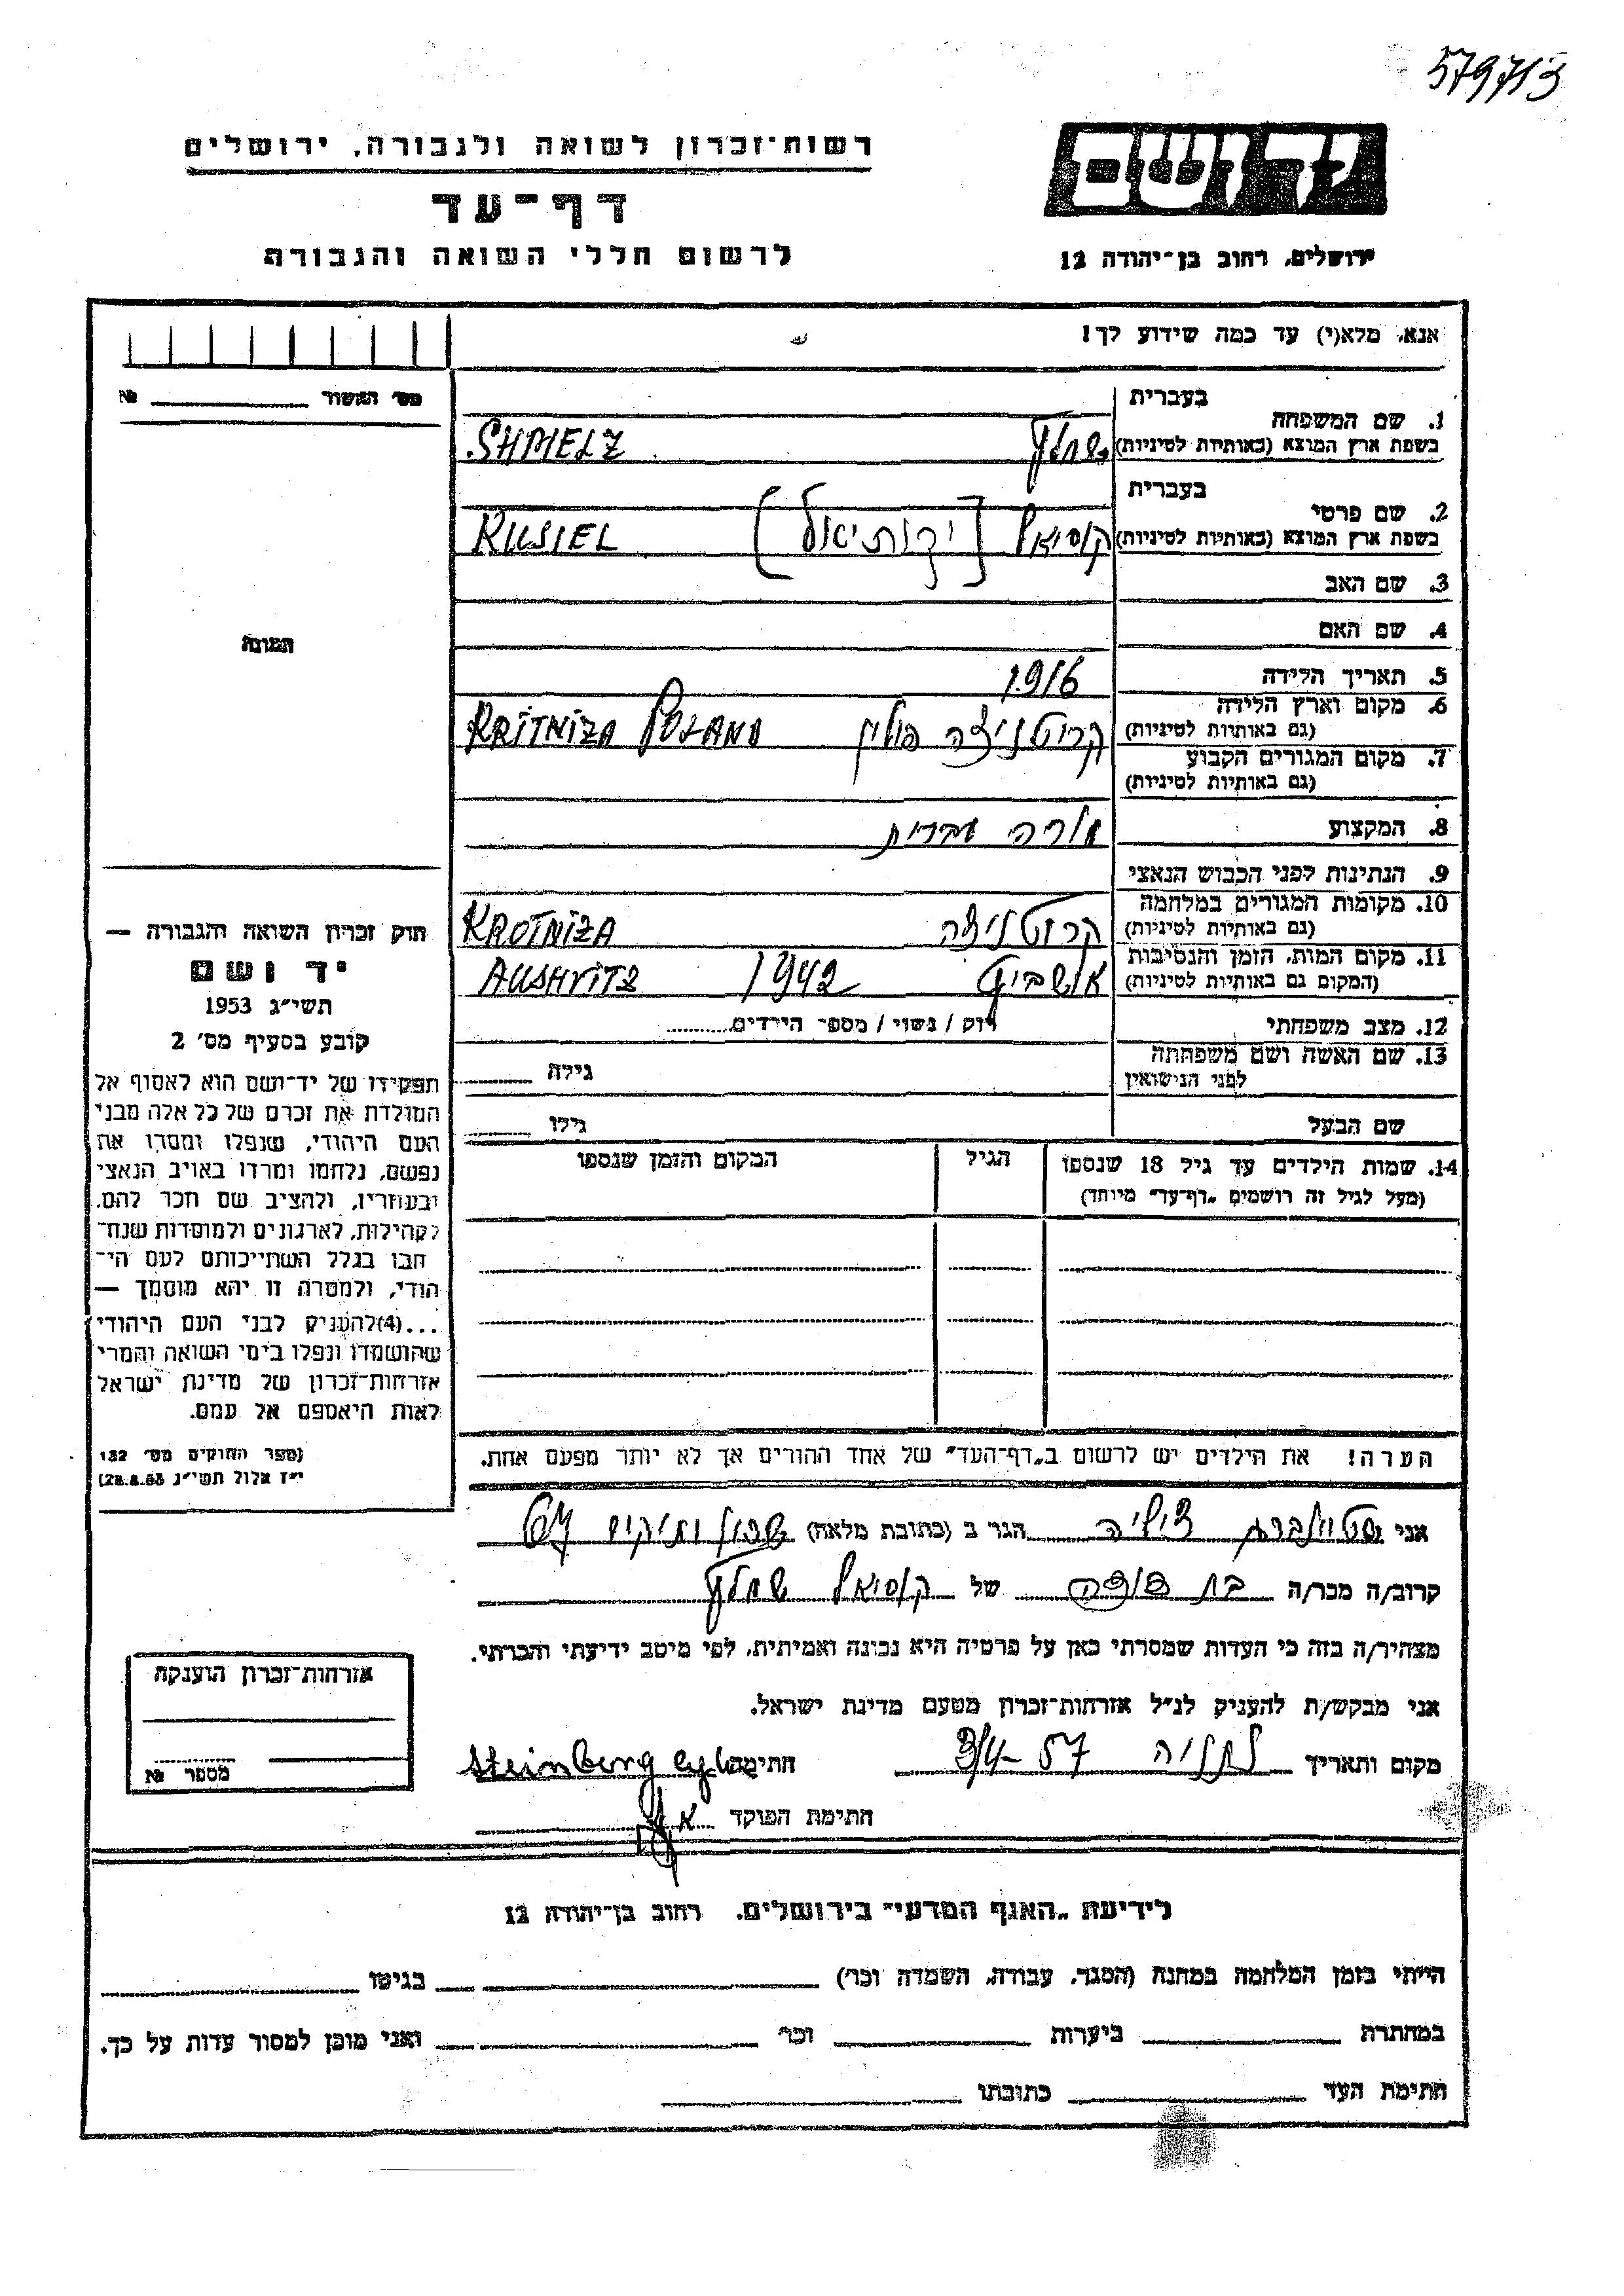 579713
רשות־זכרון לשואה ולגבורה, ירושלים
דף־עד
לרשום חללי השואה והגבורה
יד ושם
ירושלים, רחוב בן־יהודה 12
אנא, מלא(י) עד כמה שידוע לך!
מס׳ האשור № 
1. שם המשפחה בעברית
בשפת ארץ המוצא (באותיות לטיניות) שמלץ SHMELZ
2. שם פרטי בעברית
בשפת ארץ המוצא (באותיות לטיניות) קוסיאל [יקותיאל] KUSIEL
3. שם האב
4. שם האם
5. תאריך הלידה 1916
6. מקום וארץ הלידה
(גם באותיות לטיניות) קריטניצה פולין KRITNIZA POLAND
7. מקום המגורים הקבוע
(גם באותיות לטיניות)
8. המקצוע מורה עברית
9. הנתינות לפני הכבוש הנאצי
10. מקומות המגורים במלחמה
(גם באותיות לטיניות) קרוטניצה KROTNIZA
11. מקום המות, הזמן והנסיבות
(המקום גם באותיות לטיניות) אושביץ 1942 AUSHVITZ
12. מצב משפחתי רווק / נשוי / מספר הילדים
13. שם האשה ושם משפחתה
לפני הנישואין גילה
שם הבעל גילו
14. שמות הילדים עד גיל 18 שנספו
(מעל לגיל זה רושמים „דף־עד” מיוחד)
הגיל
המקום והזמן שנספו
הערה! את הילדים יש לרשום ב„דף־העד” של אחד ההורים אך לא יותר מפעם אחת.
התמונה
חוק זכרון השואה והגבורה —
יד ושם
תשי״ג 1953
קובע בסעיף מס׳ 2
תפקידו של יד־ושם הוא לאסוף אל
המולדת את זכרם של כל אלה מבני
העם היהודי, שנפלו ומסרו את
נפשם, נלחמו ומרדו באויב הנאצי
ובעוזריו, ולהציב שם וזכר להם,
לקהילות, לארגונים ולמוסדות שנח־
רבו בגלל השתייכותם לעם הי־
הודי, ולמטרה זו יהא מוסמך —
...(4)להעניק לבני העם היהודי
שהושמדו ונפלו בימי השואה והמרי
אזרחות־זכרון של מדינת ישראל
לאות היאספם אל עמם.
(ספר החוקים מס׳ 132
י״ז אלול תשי״ג 28.8.53)
אני שטיינברג צילה הגר ב (כתובת מלאה) שכון ותיקים 67
קרוב/ה מכר/ה בת דודה של קוסיאל שמלץ
מצהיר/ה בזה כי העדות שמסרתי כאן על פרטיה היא נכונה ואמיתית, לפי מיטב ידיעתי והכרתי.
אני מבקש/ת להעניק לנ״ל אזרחות־זכרון מטעם מדינת ישראל.
מקום ותאריך נתניה 3/4-57 חתימה Steinberg
חתימת הפוקד
אזרחות־זכרון הוענקה
מספר №
לידיעת „האגף המדעי” בירושלים, רחוב בן־יהודה 12
הייתי בזמן המלחמה במחנה (הסגר, עבודה, השמדה וכו׳) בגיטו
במחתרת ביערות וכו׳ ואני מוכן למסור עדות על כך.
חתימת העד כתובתו